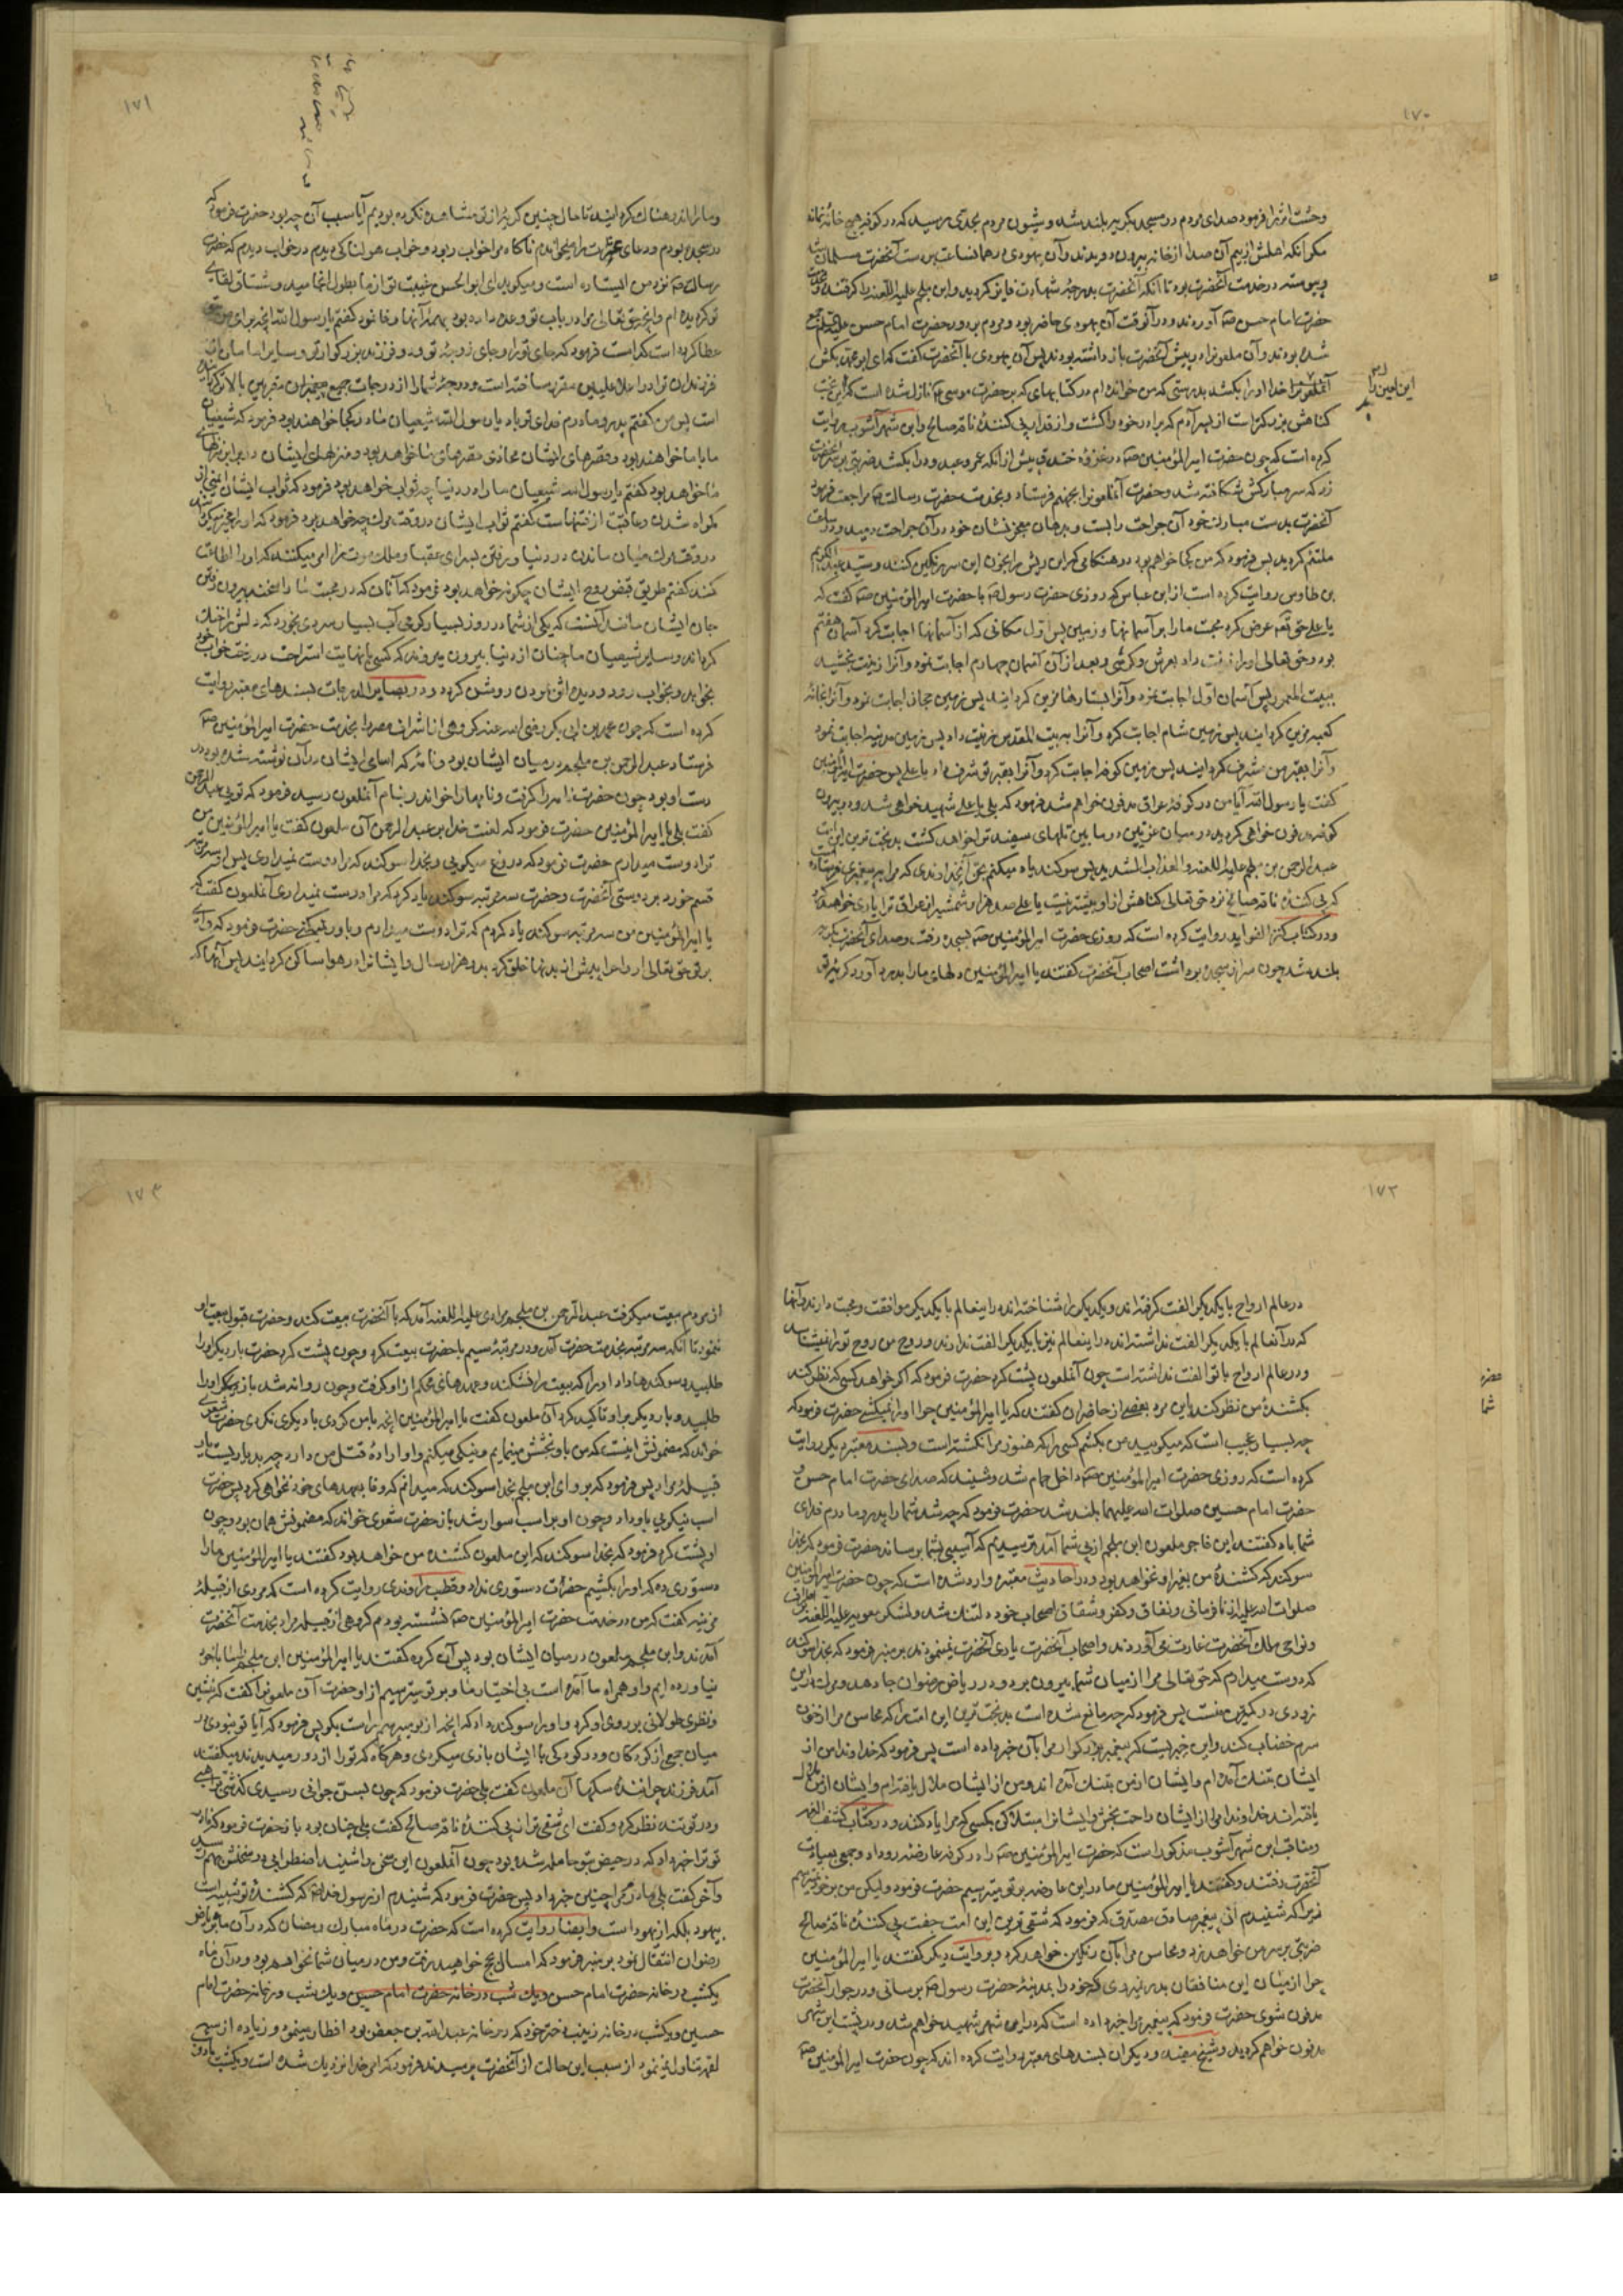 ١٧٠
وحشت اثر را فرمود صدای مردم در مسجد بگریه بلند شد و شیون مردم بحدی رسید که در کوفه هیچ خانه نماند
مگر آنکه اهلش از بیم آن صدا از خانه بیرون دویدند و آن یهودی در همان ساعت بر دست آنحضرت مسلمان شد
و پیوسته در خدمت آنحضرت بود تا آنکه آنحضرت بدرجهٔ شهادت فایز گردید و ابن ملجم علیه اللعنه را گرفتند و بخدمت
حضرت امام حسن ع آوردند و در آنوقت آن یهودی حاضر بود و مردم بر دور حضرت امام حسن علیه السلام جمع
شده بودند و آن ملعونرا در پیش آنحضرت باز داشته بودند پس آن یهودی با آنحضرت گفت که ای ابو محمد بکش
آنملعونرا خدا او را بکشد بدرستی که من خوانده ام در کتابهای که بر حضرت موسی ع نازل شده است که این لعین را
گناهش بزرگتر است از پسر آدم که برادر خود را کشت و از قدار پی کنندهٔ ناقه صالح و ابن شهر آشوب روایت
کرده است که چون حضرت امیر المؤمنین ع در غزوهٔ خندق پیش از آنکه عمرو عبد ود را بکشد ضربتی بر سر آنحضرت
زد که سر مبارکش شکافته شد و حضرت آنملعونرا بجهنم فرستاد و بخدمت حضرت رسالت ص مراجعت فرمود
آنحضرت بدست مبارک خود آن جراحت را بست و بدهان معجز نشان خود در آن جراحت دمید و در ساعت
ملتئم گردید پس فرمود که من کجا خواهم بود در هنگامی که این ریش را بخون این سر رنگین کنند و سید عبدالکریم
بن طاوس روایت کرده است از ابن عباس که روزی حضرت رسول ص با حضرت امیر المؤمنین ع گفت که
یا علی حق تعه عرض کرد محبت ما را بر آسمانها و زمین پس اول مکانی که از آسمانها اجابت کرد آسمان هفتم
بود و حق تعالی او را زینت داد بعرش و کرسی و بعد از آن آسمان چهارم اجابت نمود و آنرا زینت بخشید
ببیت المعمور پس آسمان اول اجابت نمود و آنرا بستارها مزین گردانید پس زمین حجاز اجابت نمود و آنرا بخانه
کعبه مزین گردانید پس زمین شام اجابت کرد و آنرا به بیت المقدس زینت داد پس زمین مدینه اجابت نمود
و آنرا بقبر من مشرف گردانید پس زمین کوفه اجابت کرد و آنرا بقبر تو شرف داد یا علی پس حضرت امیر المؤمنین
گفت یا رسول الله آیا من در کوفهٔ عراق مدفون خواهم شد فرمود که بلی یا علی شهید خواهی شد و در بیرون
کوفه مدفون خواهی گردید در میان غریین و در ما بین تلهای سفید ترا خواهد کشت بدبخت ترین این امت
عبدالرحمن بن ملجم علیه اللعنه و العذاب الشدید پس سوگند یاد میکنم بحق آنخداوندی که مرا به پیغمبری فرستاده است
که پی کنندهٔ ناقه صالح نزد حق تعالی گناهش از او بیشتر نیست یا علی صد هزار شمشیر از عراق ترا یاری خواهند کرد
و در کتاب کنز الفواید روایت کرده است که روزی حضرت امیر المؤمنین ع بسجده رفت و صدای آنحضرت بگریه
بلند شد چون سر از سجده برداشت اصحاب آنحضرت گفتند یا امیر المؤمنین دلهای ما را بدرد آورد گریهٔ تو
١٧١
و ما را اندوهناک گردانید تا حال چنین گریهٔ از تو مشاهده نکرده بودیم آیا سبب آن چه بود حضرت فرمود که
در سجده بودم و دعای میخواندم ناگاه مرا خواب ربود و خواب هولناکی دیدم در خواب دیدم که حضرت
رسالت ص نزد من ایستاده است و میگوید ای ابو الحسن غیبت تو از ما بطول انجامید و مشتاق لقای
تو گردیده ام و آنچه حق تعالی مرا در باب تو وعده داده بود بهمهٔ آنها وفا نمود گفتم یا رسول الله آنچه برای من
عطا کرده است کدام است فرمود که جای ترا و جای زوجهٔ تو و دو فرزند بزرگوار تو و سایر امامان از
فرزندان ترا در اعلا علیین مقرر ساخته است و درجهٔ شما را از درجات جمیع پیغمبران مقربین بالاتر گردانیده
است پس من گفتم پدر و مادرم فدای تو باد یا رسول الله شیعیان ما در کجا خواهند بود فرمود که شیعیان
ما با ما خواهند بود و قصرهای ایشان محاذی قصرهای ما خواهد بود و منزلهای ایشان در برابر منزلهای
ما خواهد بود گفتم یا رسول الله شیعیان ما را در دنیا چه ثواب خواهد بود فرمود که ثواب ایشان ایمنی از
گمراه شدن و عافیت از فتنهاست گفتم ثواب ایشان در وقت مرگ چه خواهد بود فرمود که ایشانرا مخیر میگردانند
در وقت مرگ میان ماندن در دنیا و رفتن بسرای عقبا و ملک موت را امر میکنند که او را اطاعت
کند گفتم طریق قبض روح ایشان چگونه خواهد بود فرمود که آنان که در محبت ما راسخند بیرون رفتن
جان ایشان مانند آنست که یکی از شما در روز بسیار گرمی آب بسیار سردی بخورد که دلش را خنک
گرداند و سایر شیعیان ما چنان از دنیا بیرون میروند که کسی با نهایت استراحت در رختخواب خود
بخوابد و بخواب رود و دیده اش بمردن روشن گردد و در بصایر الدرجات بسندهای معتبر روایت
کرده است که چون محمد بن ابی بکر رضی الله عنه گروهی از اشراف مصر را بخدمت حضرت امیر المؤمنین ع
فرستاد عبدالرحمن بن ملجم در میان ایشان بود و نامهٔ که اسامی ایشان در آن نوشته شده بود در
دست او بود چون حضرت نامه را گرفت و نامها را خواند و بنام آنملعون رسید فرمود که توئی عبدالرحمن
گفت بلی یا امیر المؤمنین حضرت فرمود که لعنت خدا بر عبدالرحمن آن ملعون گفت یا امیر المؤمنین من
ترا دوست میدارم حضرت فرمود که دروغ میگویی و بخدا سوگند که مرا دوست نمیداری پس او سه مرتبه
قسم خورد بر دوستی آنحضرت و حضرت سه مرتبه سوگند یاد کرد که مرا دوست نمیداری آنملعون گفت که
یا امیر المؤمنین من سه مرتبه سوگند یاد کردم که ترا دوست میدارم و باور نمیکنی حضرت فرمود که وای
بر تو حق تعالی ارواحرا پیش از بدنها خلق کرد بدو هزار سال و ایشانرا در هوا ساکن گردانید پس آنها که
١٧٢
در عالم ارواح با یکدیگر الفت گرفته اند و یکدیگر را شناخته اند در اینعالم با یکدیگر موافقت و محبت دارند و آنها
که در آنعالم با یکدیگر الفت نداشته اند در اینعالم نیز با یکدیگر الفت ندارند و روح من روح تو را نمیشناسد
و در عالم ارواح با تو الفت نداشته است چون آنملعون پشت کرد حضرت فرمود که اگر خواهد کسی که نظر کند
بکشندهٔ من نظر کند باین مرد بعضی از حاضران گفتند که یا امیر المؤمنین چرا او را نمیکشی حضرت فرمود که
چه بسیار عجیب است که میگویید من بکشم کسی را که هنوز مرا نکشته است و بسند معتبر دیگر روایت
کرده است که روزی حضرت امیر المؤمنین ع داخل حمام شد و شنید که صدای حضرت امام حسن و
حضرت امام حسین صلوات الله علیهما بلند شد حضرت فرمود که چه شد شما را پدر و مادرم فدای
شما باد گفتند این فاجر ملعون ابن ملجم از پی شما آمد ترسیدیم که آسیبی بشما برساند حضرت فرمود که بخدا
سوگند که کشندهٔ من بغیر او نخواهد بود و در احادیث معتبره وارد شده است که چون حضرت امیر المؤمنین
صلوات الله علیه از نافرمانی و نفاق و کفر و شقاق اصحاب خود دلتنگ شد و لشکر معویه علیه اللعنه بر اطراف
و نواحی ملک آنحضرت غارت می آوردند و اصحاب آنحضرت یاری آنحضرت نمینمودند بر منبر فرمود که بخدا سوگند
که دوست میدارم که حق تعالی مرا از میان شما بیرون برد و در ریاض رضوان جا دهد و مرگ
زودی در کمین منست پس فرمود که چه مانع شده است بدبخت ترین این امت را که محاسن مرا از خون
سرم خضاب کند و این خبریست که پیغمبر بزرگوار مرا بآن خبر داده است پس فرمود که خداوندا من از
ایشان بتنگ آمده ام و ایشان از من بتنگ آمده اند و من از ایشان ملال یافته ام و ایشان از من ملال
یافته اند خداوندا مرا از ایشان راحت بخش و ایشانرا مبتلا کن بکسی که مرا یاد کنند و در کتاب کشف الغمه
و مناقب ابن شهر آشوب مذکور است که حضرت امیر المؤمنین ع را در کوفه عارضهٔ رو داد و جمعی بعیادت
آنحضرت رفتند و گفتند یا امیر المؤمنین ما در این عارضه بر تو میترسیم حضرت فرمود ولیکن من بر خود نمیترسم
زیرا که شنیدم از پیغمبر صادق مصدق که فرمود که شقی ترین این امت جفت پی کنندهٔ ناقهٔ صالح
ضربتی بر سر من خواهد زد و محاسن مرا بآن رنگین خواهد کرد و بروایت دیگر گفتند یا امیر المؤمنین
چرا از میان این منافقان بدر نمیروی که خود را بمدینهٔ حضرت رسول ص برسانی و در جوار آنحضرت
مدفون شوی حضرت فرمود که پیغمبر مرا خبر داده است که در این شهر شهید خواهم شد و در پشت این شهر
مدفون خواهم گردید و شیخ مفید و دیگران بسندهای معتبر روایت کرده اند که چون حضرت امیر المؤمنین ع
١٧٣
از مردم بیعت میگرفت عبدالرحمن بن ملجم مرادی علیه اللعنه آمد که با آنحضرت بیعت کند و حضرت قبول بیعت او
ننمود تا آنکه سه مرتبه بخدمت حضرت آمد و در مرتبهٔ سیم با حضرت بیعت کرد و چون پشت کرد حضرت بار دیگر او را
طلبید و سوگندها داد او را که بیعت را نشکند و عهدهای محکم از او گرفت و چون روانه شد باز دیگر او را
طلبید و بار دیگر بر او تاکید کرد آن ملعون گفت یا امیر المؤمنین آنچه با من کردی با دیگری نکردی حضرت شعری
خواند که مضمونش اینست که من باو بخشش مینمایم و نیکی میکنم و او ارادهٔ قتل من دارد
قبیلهٔ مراد پس فرمود که برو ای ابن ملجم بخدا سوگند که میدانم که وفا بعهدهای خود نخواهی کرد پس حضرت
اسب نیکویی باو داد و چون او بر اسب سوار شد باز حضرت شعری خواند که مضمونش همان بود و چون
او پشت کرد فرمود که بخدا سوگند که این ملعون کشندهٔ من خواهد بود گفتند یا امیر المؤمنین ما را
دستوری ده که او را بکشیم حضرت دستوری نداد و قطب راوندی روایت کرده است که مردی از قبیلهٔ
مزینه گفت که من در خدمت حضرت امیر المؤمنین ع نشسته بودم گروهی از قبیله مراد بخدمت آنحضرت
آمدند و ابن ملجم ملعون در میان ایشان بود پس آن گروه گفتند یا امیر المؤمنین ابن ملجم را ما با خود
نیاورده ایم و او همراه ما آمده است بی اختیار ما و بر تو میترسیم از او حضرت آن ملعونرا گفت که بنشین
و نظری طولانی بر روی او کرد و او را سوگند داد که آنچه از تو میپرسم براست بگو پس فرمود که آیا تو نبودی در
میان جمعی از کودکان و در کودکی با ایشان بازی میکردی و هرگاه که تو را از دور میدیدند میگفتند
آمد فرزند چرانندهٔ سگها آن ملعون گفت بلی حضرت فرمود که چون بسن جوانی رسیدی گذشتی براهبی
و در تو تند نظر کرد و گفت ای شقی تر از پی کنندهٔ ناقه صالح گفت بلی چنان بود باز حضرت فرمود که مادر
تو ترا خبر داد که در حیض بتو حامله شده بود چون آنملعون این سخن را شنید اضطرابی در سخنش بهم رسید
و آخر گفت بلی مادرم مرا چنین خبر داد پس حضرت فرمود که شنیدم از رسول خدا ص که کشندهٔ تو شبیه است
بیهود بلکه از یهود است و ایضا روایت کرده است که حضرت در ماه مبارک رمضان که در آن ماه بریاض
رضوان انتقال نمود بر منبر فرمود که امسال بحج خواهید رفت و من در میان شما نخواهم بود و در آن ماه
یکشب در خانه حضرت امام حسن و یک شب در خانه حضرت امام حسین و یک شب در خانه حضرت امام
حسین و یکشب در خانه زینب دختر خود که در خانه عبدالله بن جعفر بود افطار مینمود و زیاده از سه
لقمه تناول نمی نمود از سبب این حالت از آنحضرت پرسیدند فرمود که امر خدا نزدیک شده است و یکشب یا دو